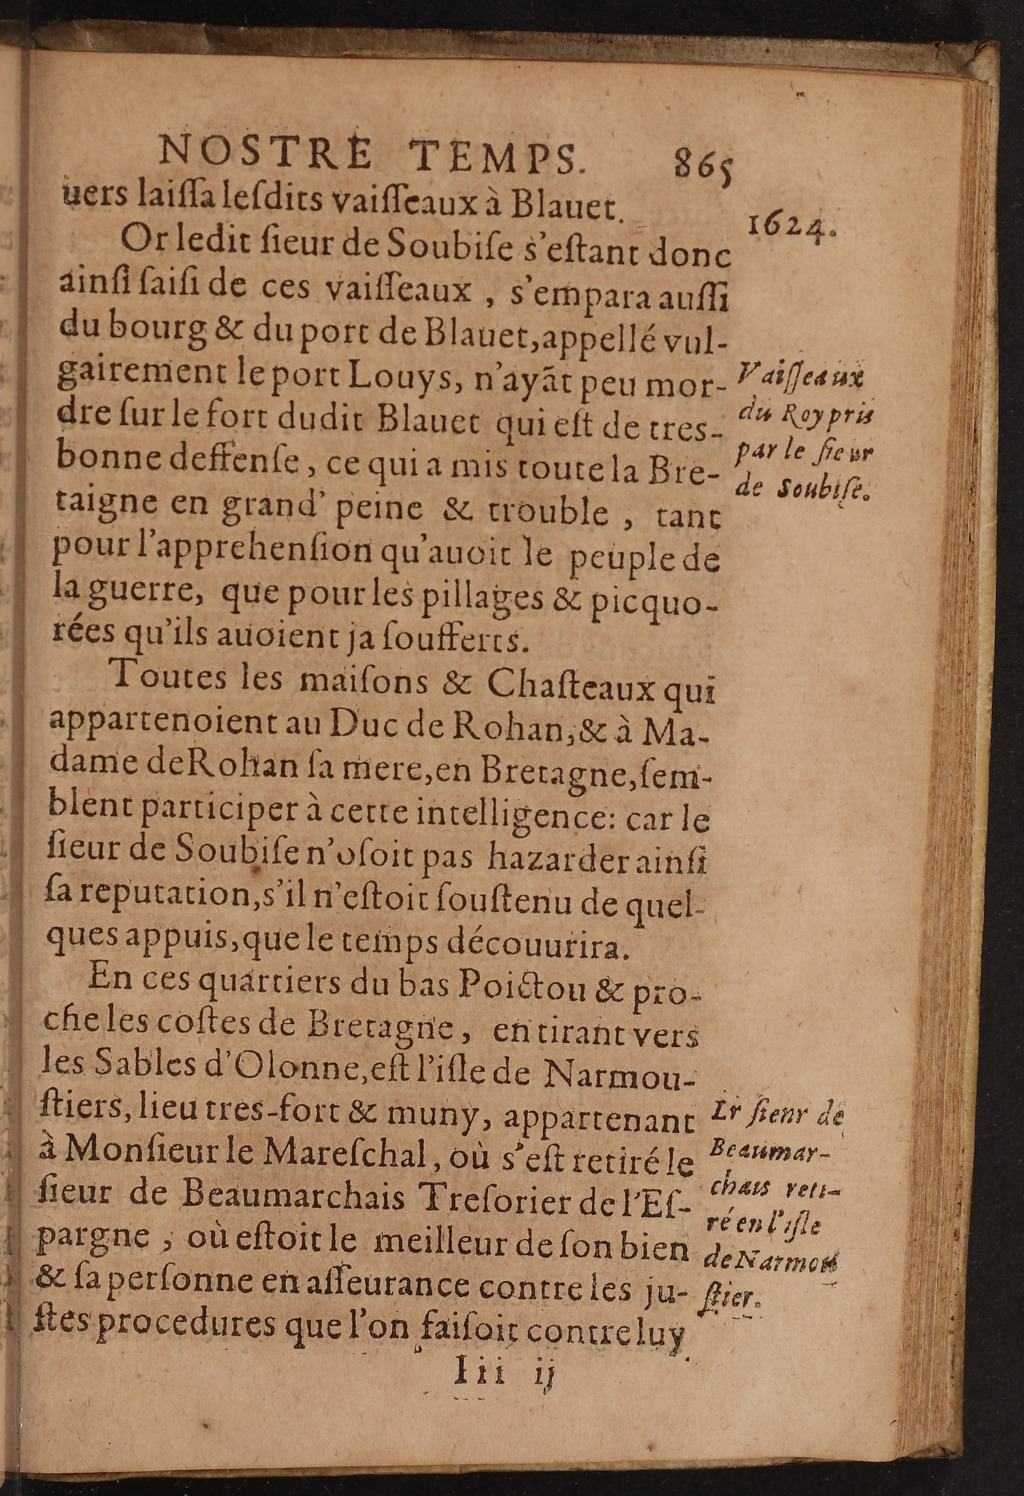 NOSTRE TEMPS. 865
uers laiſſa leſdits vaiſſeaux à Blauet.
1624.
Or ledit ſieur de Soubiſe s'eſtant donc
ainſi ſaiſi de ces vaiſſeaux , s'empara auſſi
du bourg & du port de Blauet,appellé vul-
gairement le port Louys, n'ayāt peu mor-
dre ſur le fort dudit Blauet qui eſt de tres-
bonne deffenſe , ce qui a mis toute la Bre-
taigne en grand' peine & trouble , tant
pour l'apprehenſion qu'auoit le peuple de
la guerre, que pour les pillages & picquo-
rées qu'ils auoient ja ſoufferts.
Vaiſſeaux
du Roy pris
par le ſieur
de Soubiſe.
Toutes les maiſons & Chaſteaux qui
appartenoient au Duc de Rohan,& à Ma-
dame de Rohan ſa mere,en Bretagne,ſem-
blent participer à cette intelligence: car le
ſieur de Soubiſe n'oſoit pas hazarder ainſi
ſa reputation,s'il n'eſtoit ſouſtenu de quel-
ques appuis,que le temps découurira.
En ces quartiers du bas Poictou & pro-
che les coſtes de Bretagne, en tirant vers
les Sables d'Olonne,eſt l'iſle de Narmou-
ſtiers, lieu tres-fort & muny, appartenant
à Monſieur le Mareſchal, où s'eſt retiré le
ſieur de Beaumarchais Treſorier de l'Eſ-
pargne , où eſtoit le meilleur de ſon bien
& ſa perſonne en aſſeurance contre les ju-
ſtes procedures que l'on faiſoit contre luy
Le ſieur de
Beaumar-
chais reti-
ré en l'iſle
de Narmou
ſtier.
Iii ij